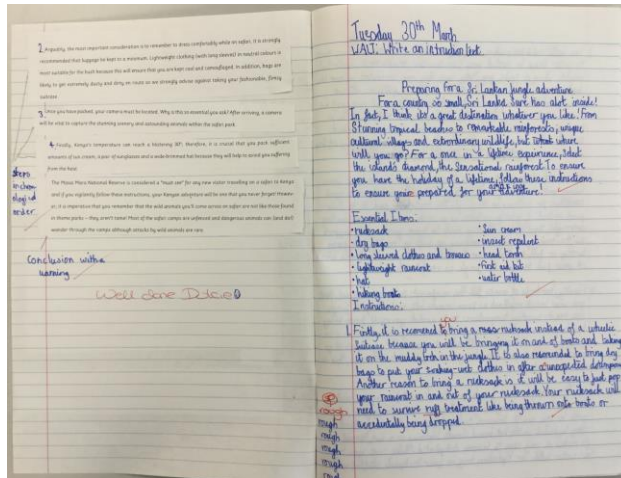 2. Arguably, the most important consideration is to remember to dress comfortably while on safari. It is strongly
recommended that luggage be kept to a minimum. Lightweight clothing (with long sleeves) in neutral colours is
most suitable for the bush because this will ensure that you are kept cool and camouflaged. In addition, bags are
likely to get extremely dusty and dirty en route so we strongly advise against taking your fashionable, fancy
suitcase
3. Once you have packed, your camera must be located. Why is this so essential you ask? After arriving, a camera
will be vital to capture the stunning scenery and astounding animals within the safari park.
4. Finally, Kenya's temperature can reach a blistering 30°, therefore, it is crucial that you pack sufficient
amounts of sun cream, a pair of sunglasses and a wide brimmed hat because they will help to avoid you suffering
from the heat.
The Masai Mara National Reserve is considered a "must see" for any new visitor travelling on a safari to Kenya
and if you vigilantly follow these instructions, your Kenyan adventure will be one that you never forget! However,
it is imperative that you remember that the wild animals you'll come across on safari are not like those found
in theme parks – they aren't tame! Most of the safari camps are unfenced and dangerous animals can (and do!)
wander through the camps although attacks by wild animals are rare.
Steps
in chron
ological
order.
Conclusion with a
warning
Well done
Tuesday 30th March
WALT: Write an intruction text
Preparing for a Sri Lankan jungle adventure
For a country so small, Sri Lanka sure has alot inside!
In fact, I think its a great destination whatever you like. From
stunning tropical beaches to remarkable rainforests, unique
cultural villages and extraordinary wildlife, but what where
will you go? For a once in a lifetime experience, select
the islands diamond, the sensational rainforest. To ensure
you have the holiday of a lifetime, follow these instructions
to ensure your prepared for your adventure!
Essential Items:
• rucksack
• dry bags
• long sleeved clothes and trousers
• lightweight raincoat
• hat
• hiking boots
• Sun cream
• insect repelent
• head torch
• first aid kit
• water bottle
Instructions:
1. Firstly, it is recomened you to bring a rucksack instead of a wheelie
suitcase because you will be bringing it on and of boats and taking
it on the muddy in the jungle. It is also recomended to bring dry
bags to put your soaking-wet clothes in after a unexpected downpour.
Another reason to bring a rucksack is it will be easy to just pop
your raincoat in and out of your rucksack. Your rucksack will
need to survive ruff treatment like being thrown onto boats or
accidentally being dropped.
sp
rough
rough
rough
rough
rough